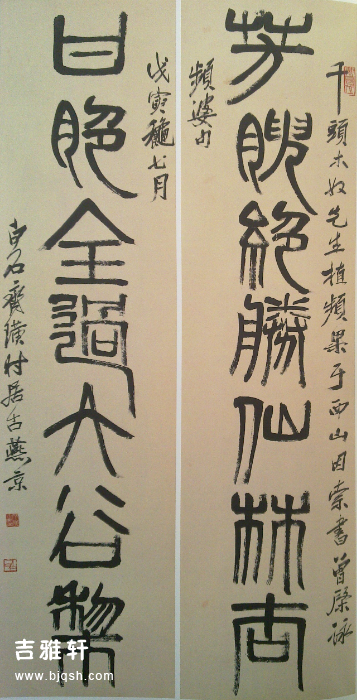 千頭木奴先生植頻果于西山因索書曾棨詠
芳腴絕勝仙林杏
頻婆句
戊寅龝七月
甘脃全過大谷棃
白石齊璜時居古燕京
吉雅轩
www.bjqsh.com